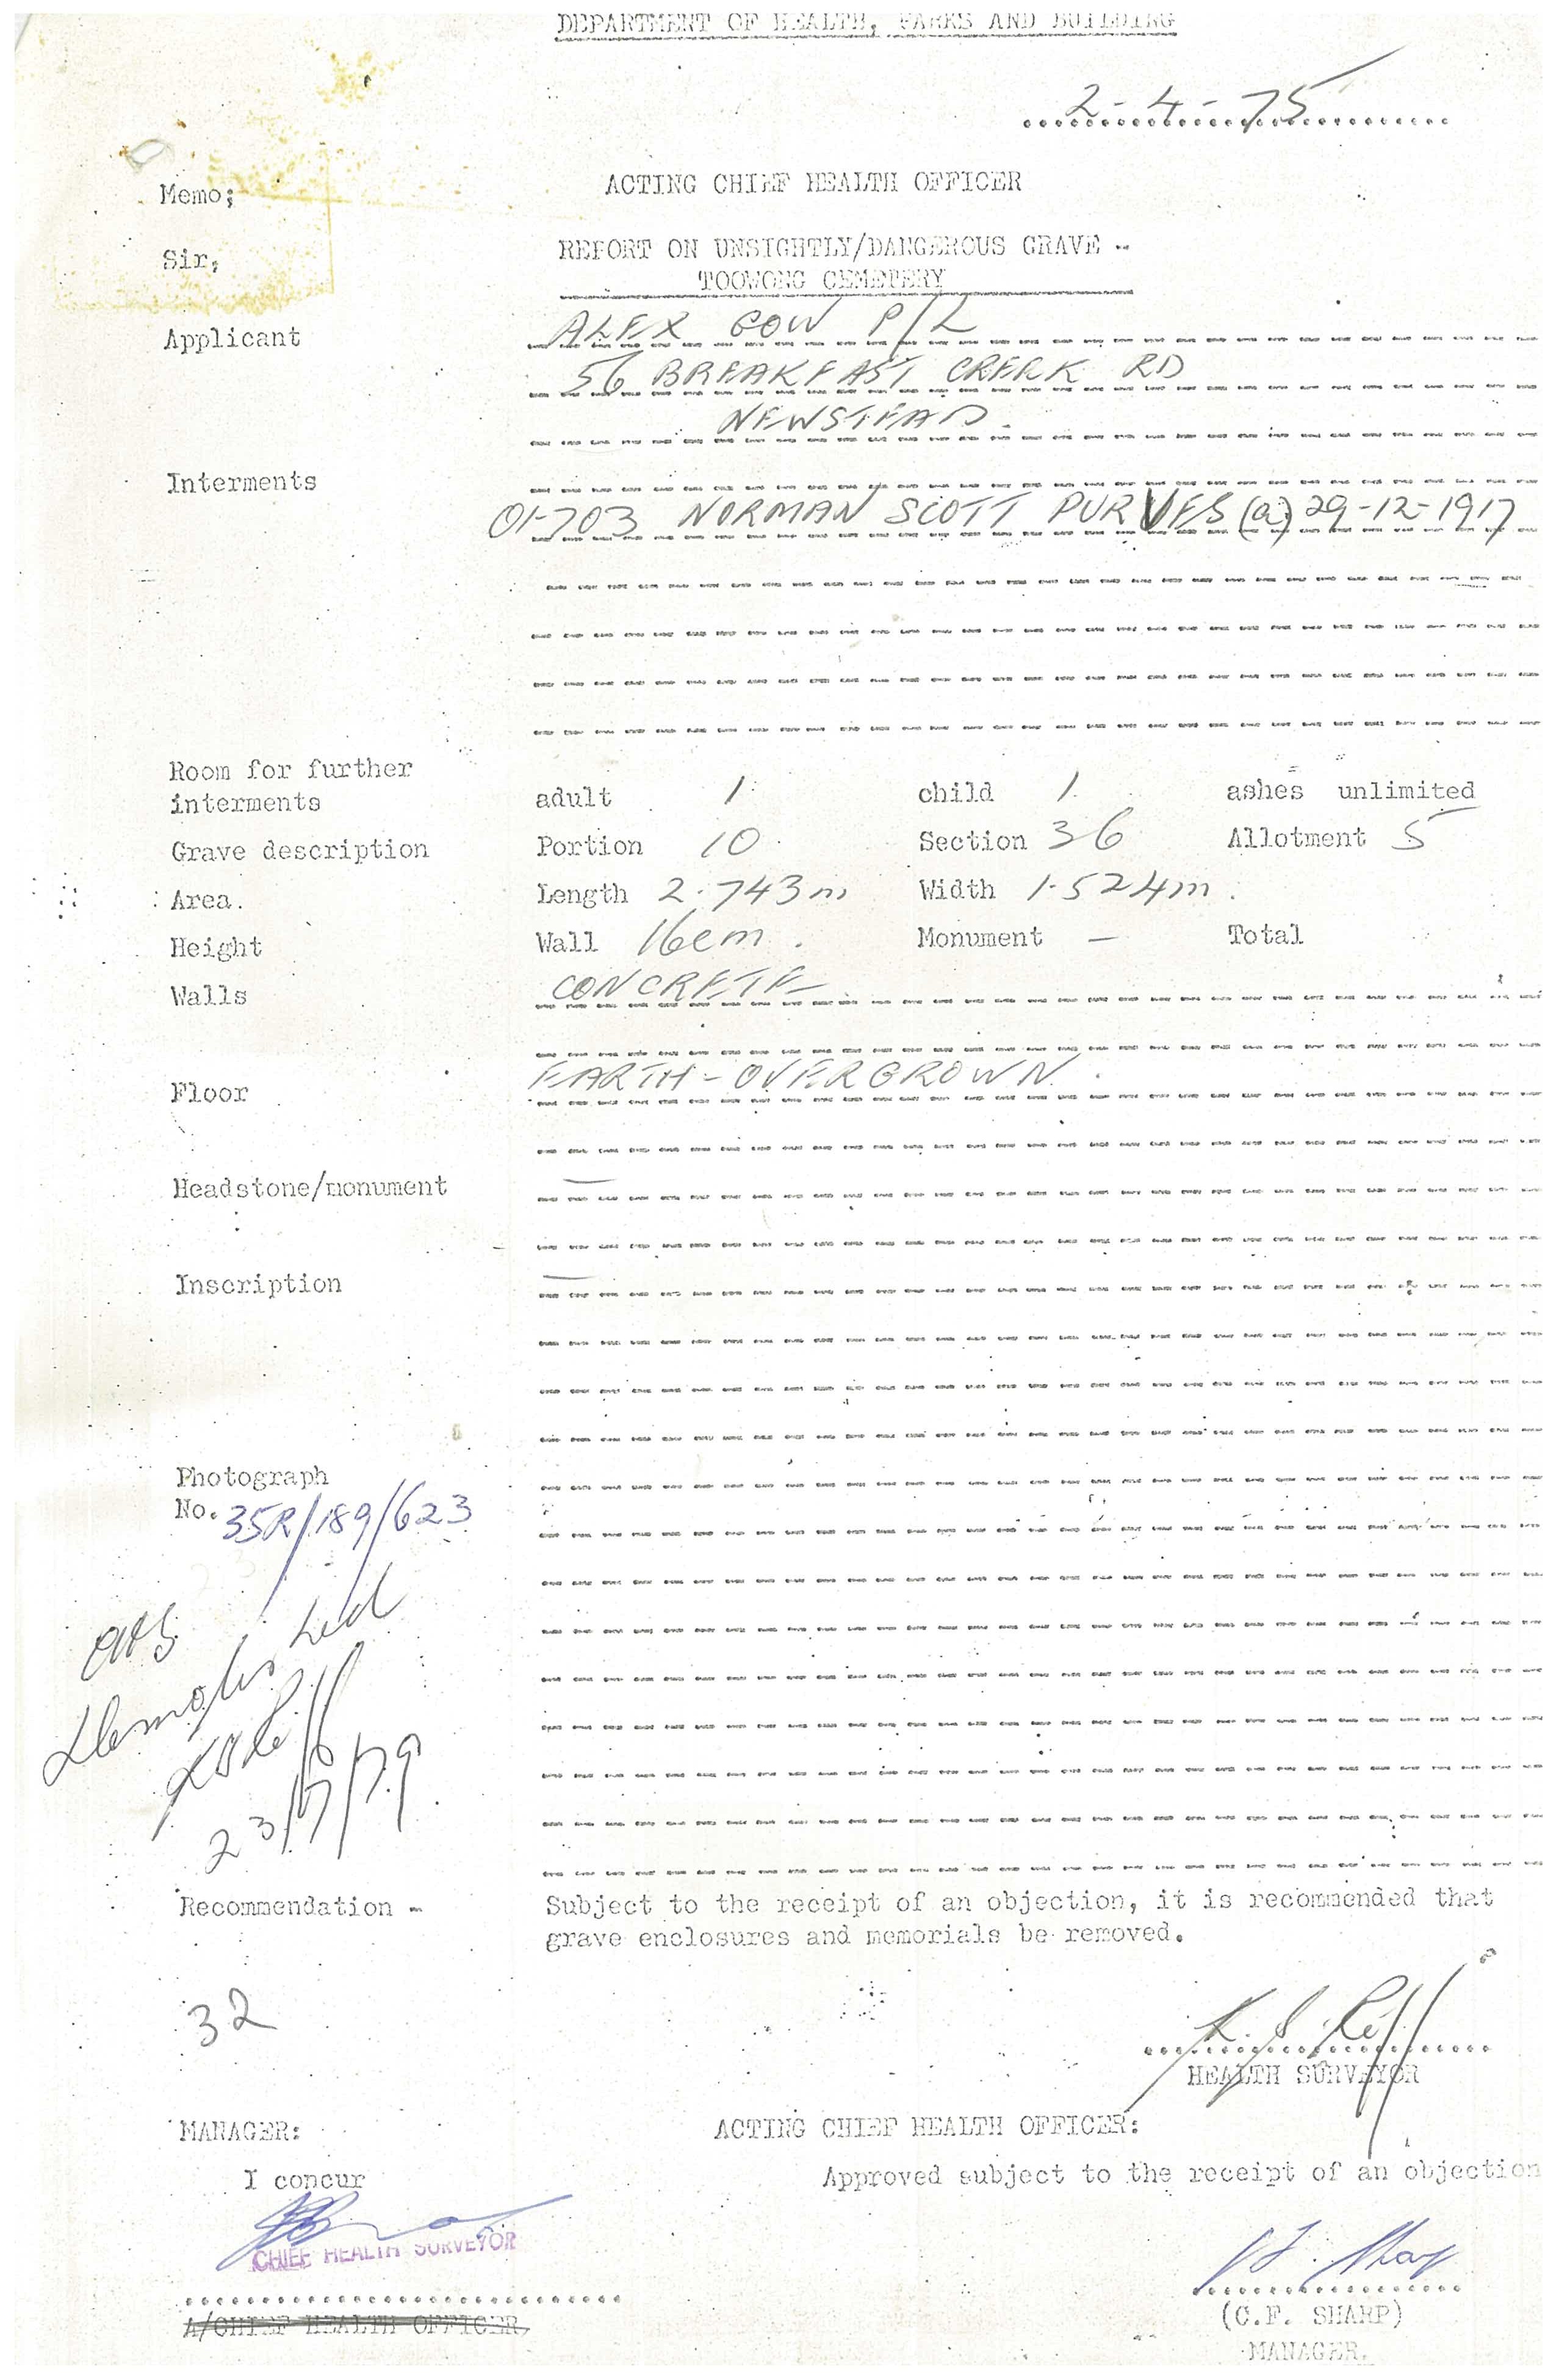 DEPARTMENT OF HEALTH, PARKS AND BUILDING
2-4-75
Memo; ACTING CHIEF HEALTH OFFICER
Sir, REPORT ON UNSIGHTLY/DANGEROUS GRAVE -
TOOWONG CEMETERY
Applicant ALEX GOW P/L
56 BREAKFAST CREEK RD
NEWSTEAD.
Interments
01-703 NORMAN SCOTT PURVES (a) 29-12-1917
Room for further
interments adult 1 child 1 ashes unlimited
Grave description Portion 10 Section 36 Allotment 5
Area. Length 2.743m Width 1.524m.
Height Wall 16cm. Monument — Total
Walls CONCRETE
Floor EARTH - OVERGROWN.
Headstone/monument —
Inscription —
Photograph
No. 35R/189/623
23/7/79
Recommendation - Subject to the receipt of an objection, it is recommended that
grave enclosures and memorials be removed.
32
HEALTH SURVEYOR
MANAGER: ACTING CHIEF HEALTH OFFICER:
I concur Approved subject to the receipt of an objection
CHIEF HEALTH SURVEYOR
A/CHIEF HEALTH OFFICER.
(C.F. SHARP)
MANAGER.